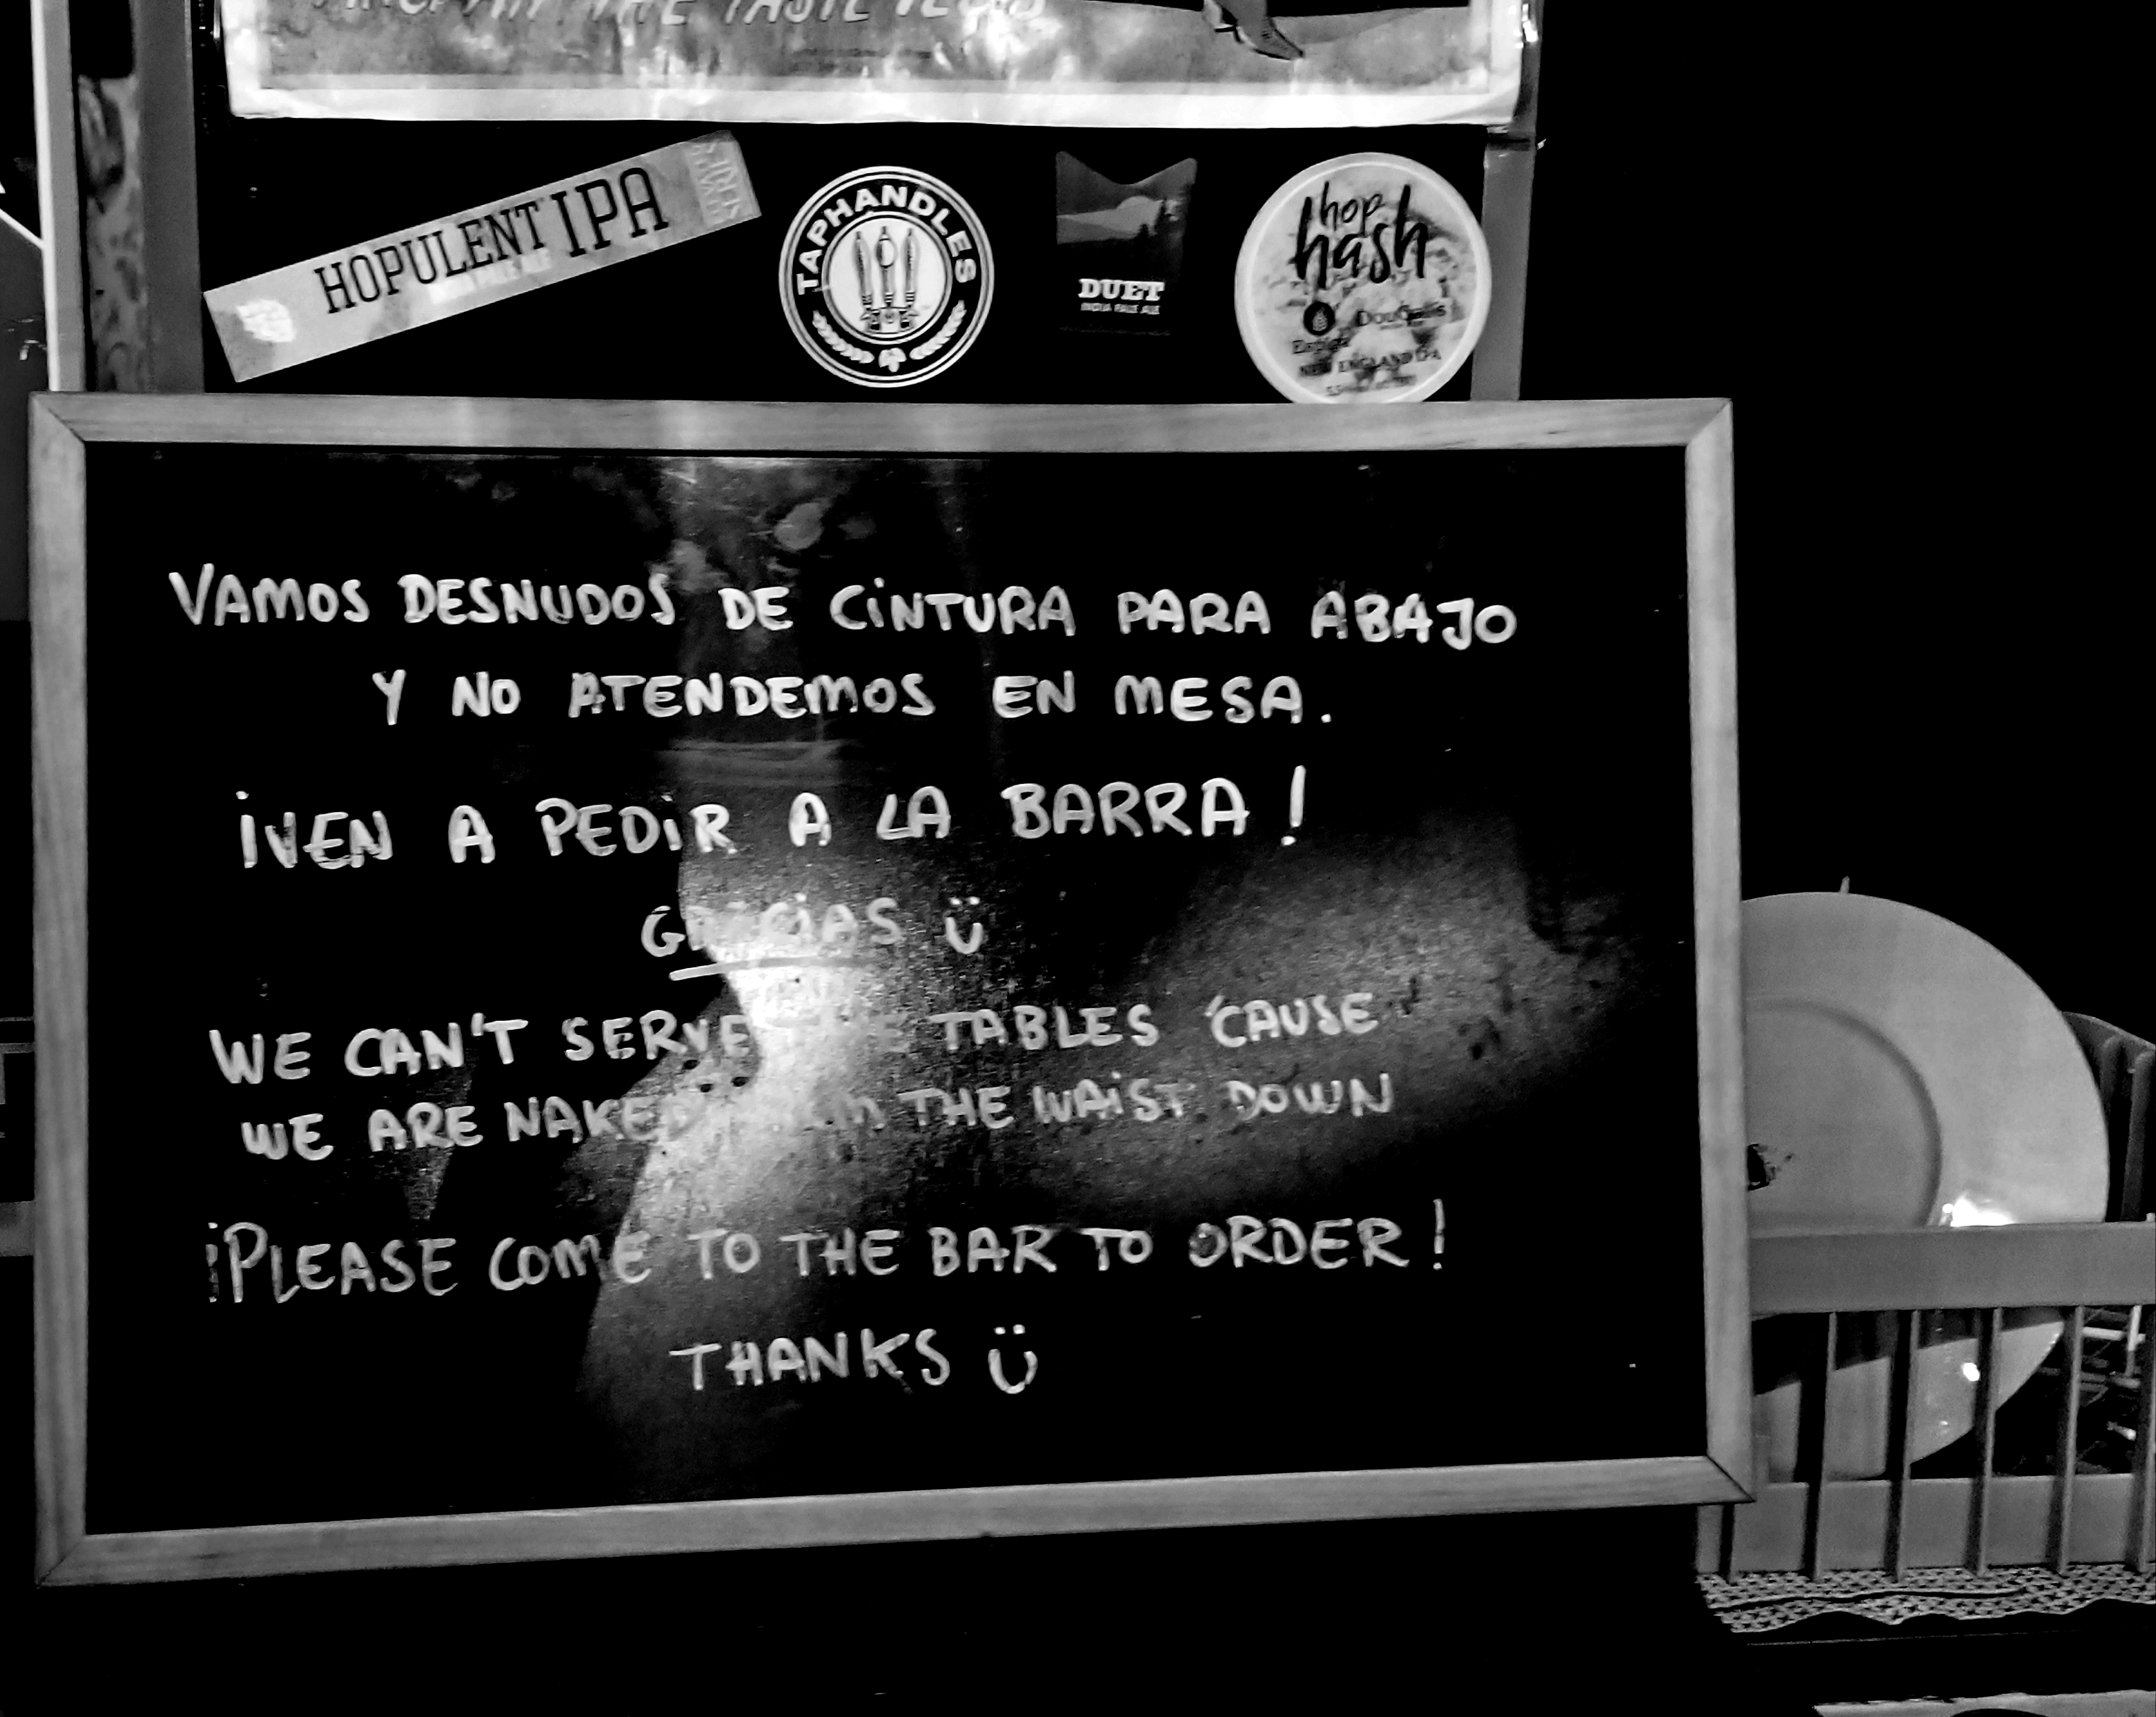 THE TASTE
HOPULENT IPA
TAPHANDLES
DUET
INDIA PALE ALE
hop
hash
Espiga
DouGall's
NEW ENGLAND IPA
VAMOS DESNUDOS DE CINTURA PARA ABAJO
Y NO ATENDEMOS EN MESA.
¡VEN A PEDIR A LA BARRA!
GRACIAS Ü
WE CAN'T SERVE THE TABLES 'CAUSE
WE ARE NAKED FROM THE WAIST DOWN
¡PLEASE COME TO THE BAR TO ORDER!
THANKS Ü